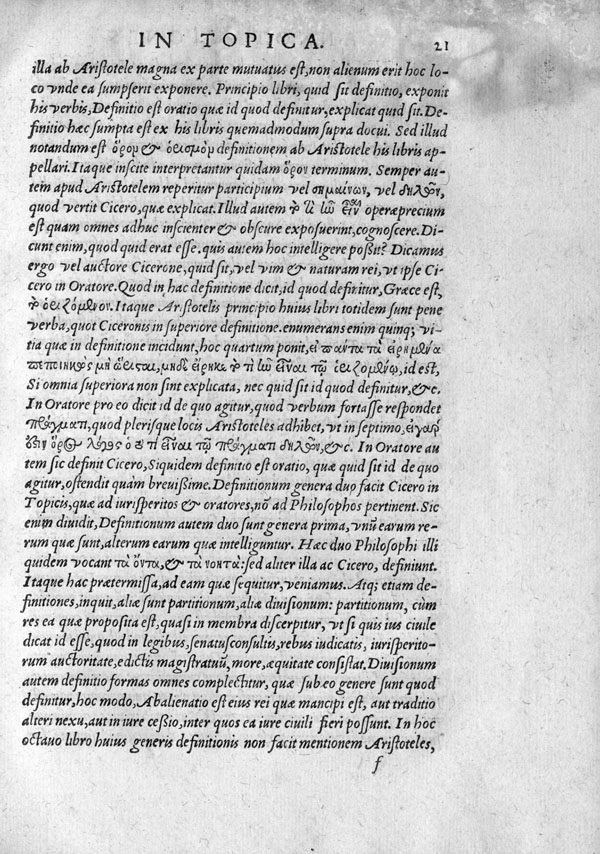 IN TOPICA. 21
illa ab Aristotele magna ex parte mutuatus est, non alienum erit hoc lo-
co vnde ea sumpserit exponere. Principio libri, quid sit definitio, exponit
his verbis, Definitio est oratio quæ id quod definitur, explicat quid sit. De-
finitio hæc sumpta est ex his libris quemadmodum supra docui. Sed illud
notandum est ὅρον & ὁρισμὸν definitionem ab Aristotele his libris ap-
pellari. Itaque inscite interpretantur quidam ὅρον terminum. Semper au-
tem apud Aristotelem reperitur participium vel σημαίνων, vel δηλῶν,
quod vertit Cicero, quæ explicat. Illud autem τὸ τί ἦν εἶναι operæprecium
est quam omnes adhuc inscienter & obscure exposuerint, cognoscere. Di-
cunt enim, quod quid erat esse. quis autem hoc intelligere poßit? Dicamus
ergo vel auctore Cicerone, quid sit, vel vim & naturam rei, vt ipse Ci-
cero in Oratore. Quod in hac definitione dicit, id quod definitur, Græce est,
τὸ ὁριζόμενον. Itaque Aristotelis principio huius libri totidem sunt pene
verba, quot Ciceronis in superiore definitione. enumerans enim quinq; vi-
tia quæ in definitione incidunt, hoc quartum ponit, εἰ πάντα τὰ εἰρημένα
πεποιηκὼς μὴ ὥρισται, μηδὲ εἴρηκε τὸ τί ἦν εἶναι τῷ ὁριζομένῳ, id est,
Si omnia superiora non sint explicata, nec quid sit id quod definitur, &c.
In Oratore pro eo dicit id de quo agitur, quod verbum fortasse respondet
πράγματι, quod plerisque locis Aristoteles adhibet, vt in septimo, εἰ γάρ
ὅρος λόγος ὁ τί εἶναι τῷ πράγματι δηλῶν, &c. In Oratore au
tem sic definit Cicero, Siquidem definitio est oratio, quæ quid sit id de quo
agitur, ostendit quàm breuißime. Definitionum genera duo facit Cicero in
Topicis, quæ ad iurisperitos & oratores, nō ad Philosophos pertinent. Sic
enim diuidit, Definitionum autem duo sunt genera prima, vnū earum re-
rum quæ sunt, alterum earum quæ intelliguntur. Hæc duo Philosophi illi
quidem vocant τὰ ὄντα, & τὰ νοητά: sed aliter illa ac Cicero, definiunt.
Itaque hac prætermissa, ad eam quæ sequitur, veniamus. Atq; etiam de-
finitiones, inquit, aliæ sunt partitionum, aliæ diuisionum: partitionum, cùm
res ea quæ proposita est, quasi in membra discerpitur, vt si quis ius ciuile
dicat id esse, quod in legibus, senatusconsultis, rebus iudicatis, iurisperito-
rum auctoritate, edictis magistratuū, more, æquitate consistat. Diuisionum
autem definitio formas omnes complectitur, quæ sub eo genere sunt quod
definitur, hoc modo, Abalienatio est eius rei quæ mancipi est, aut traditio
alteri nexu, aut in iure ceßio, inter quos ea iure ciuili fieri possunt. In hoc
octauo libro huius generis definitionis non facit mentionem Aristoteles,
f